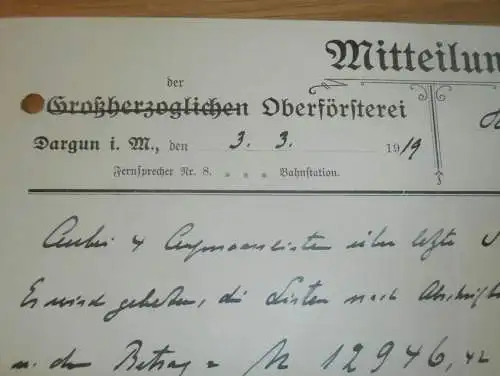 Mitteilun
der
Großherzoglichen Oberförsterei
Dargun i. M., den 3. 3. 1919
Fernsprecher Nr. 8. Bahnstation.
Anbei 4 über letzte
Es wird gebeten, die Listen nach
u. den Betrag = M 12946,42